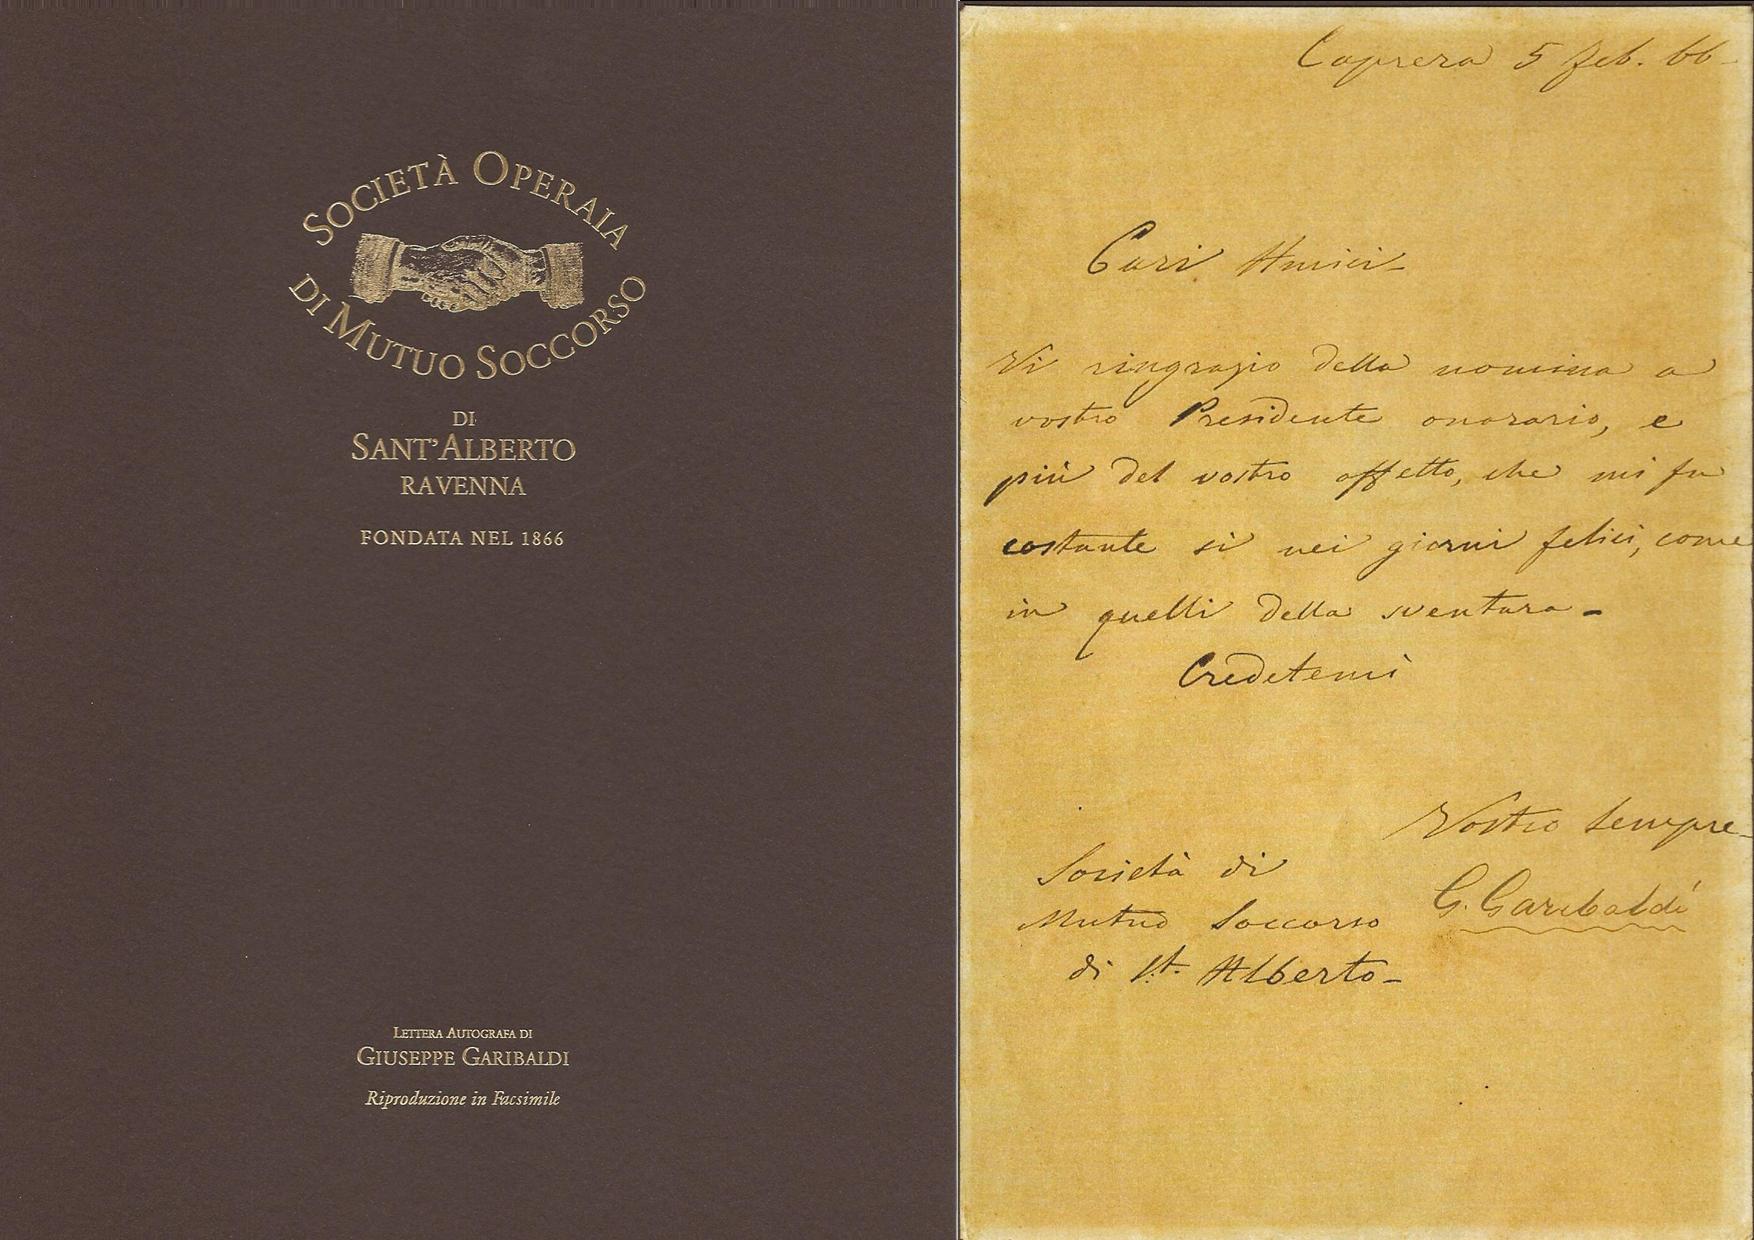 SOCIETÀ OPERAIA
DI MUTUO SOCCORSO
DI
SANT'ALBERTO
RAVENNA
FONDATA NEL 1866
LETTERA AUTOGRAFA DI
GIUSEPPE GARIBALDI
Riproduzione in Facsimile
Caprera 5 feb. 66-
Cari Amici-
Vi ringrazio della nomina a
vostro Presidente onorario, e
più del vostro affetto, che mi fu
costante sì nei giorni felici, come
in quelli della sventura-
Credetemi
Vostro sempre-
G. Garibaldi
Società di
Mutuo Soccorso
di St. Alberto-